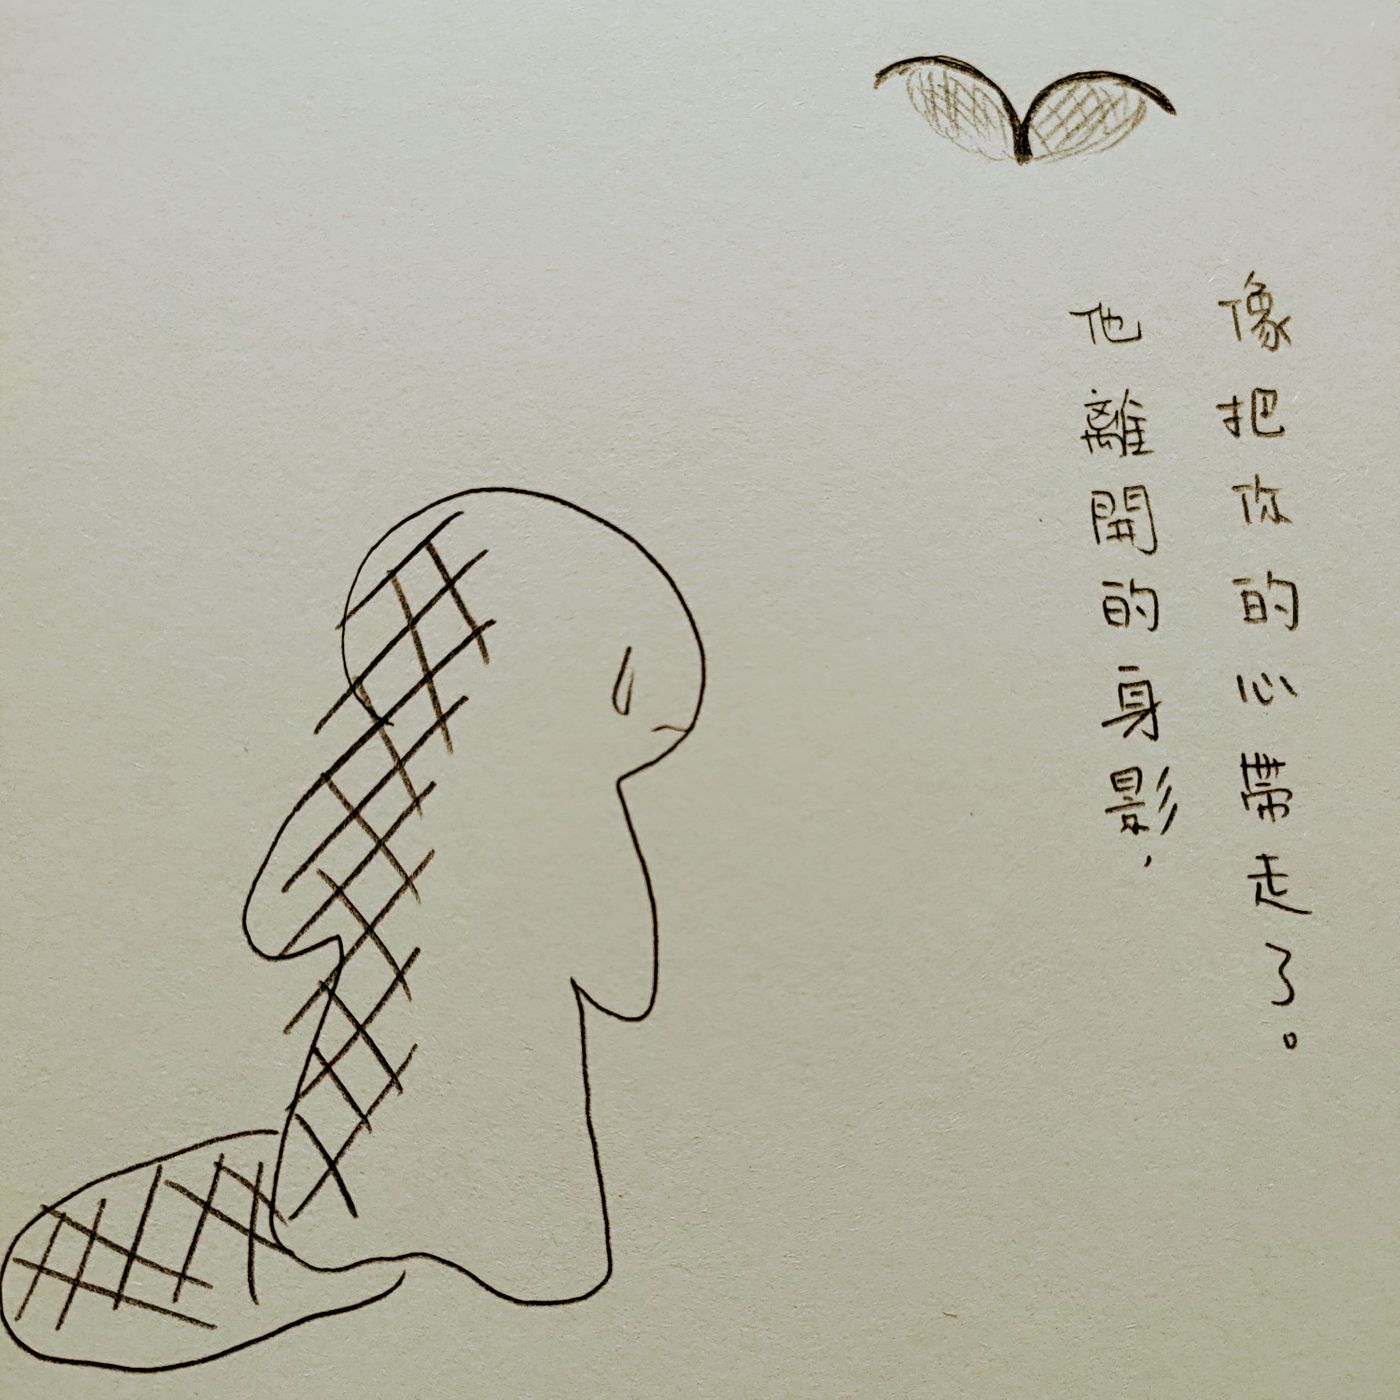 他離開的身影，
像把你的心帶走了。